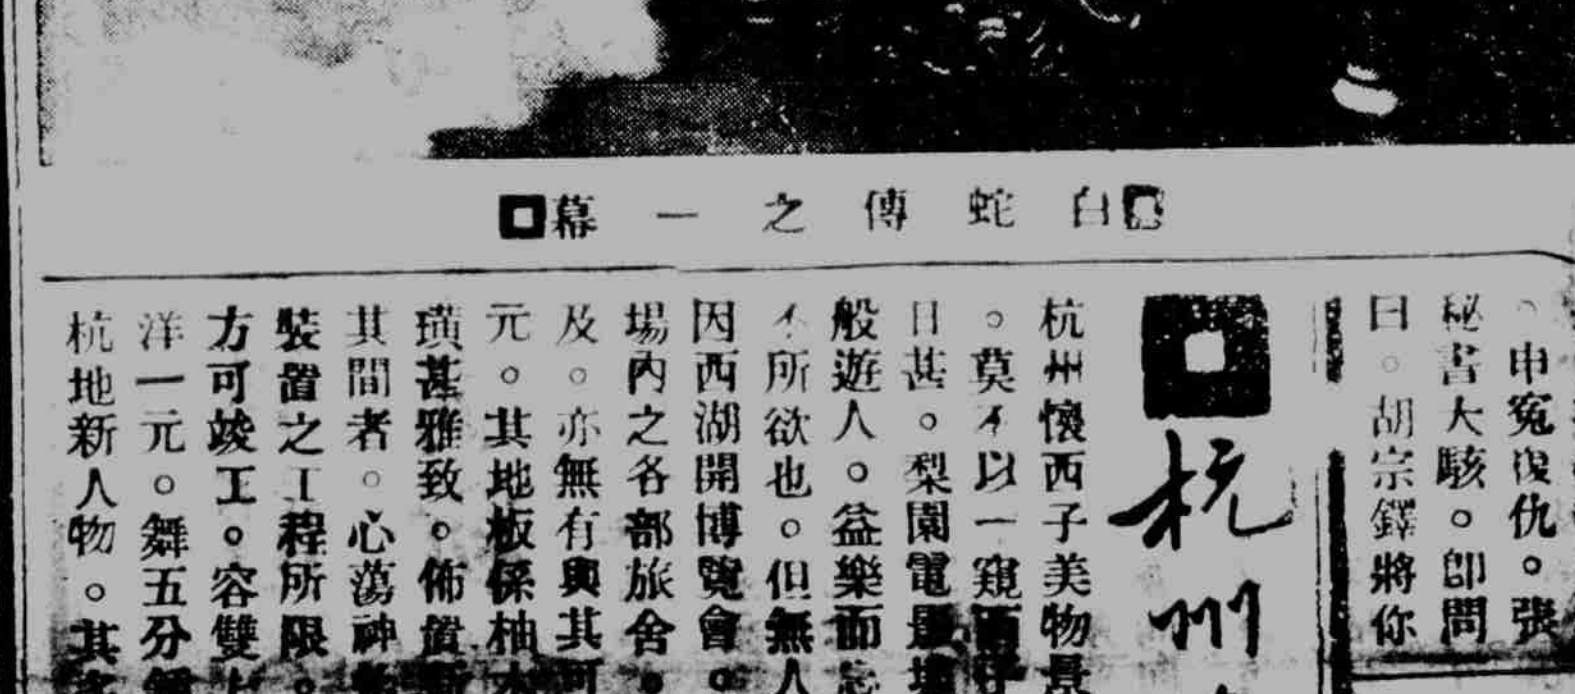 白蛇傳之一幕
。申寃復仇。張
秘書大駭。卽問
曰。胡宗鐸將你
杭州
杭州懷西子美物景
。莫不以一窺西子
日甚。梨園電景場
般遊人。益樂而忘
不所欲也。但無人
因西湖開博覽會。
場內之各部旅舍。
及。亦無有與其可
元。其地板係柚木
璜甚雅致。佈置
其間者。心蕩神
裝置之工程所限。
方可竣工。容雙
洋一元。舞五分
杭地新人物。其